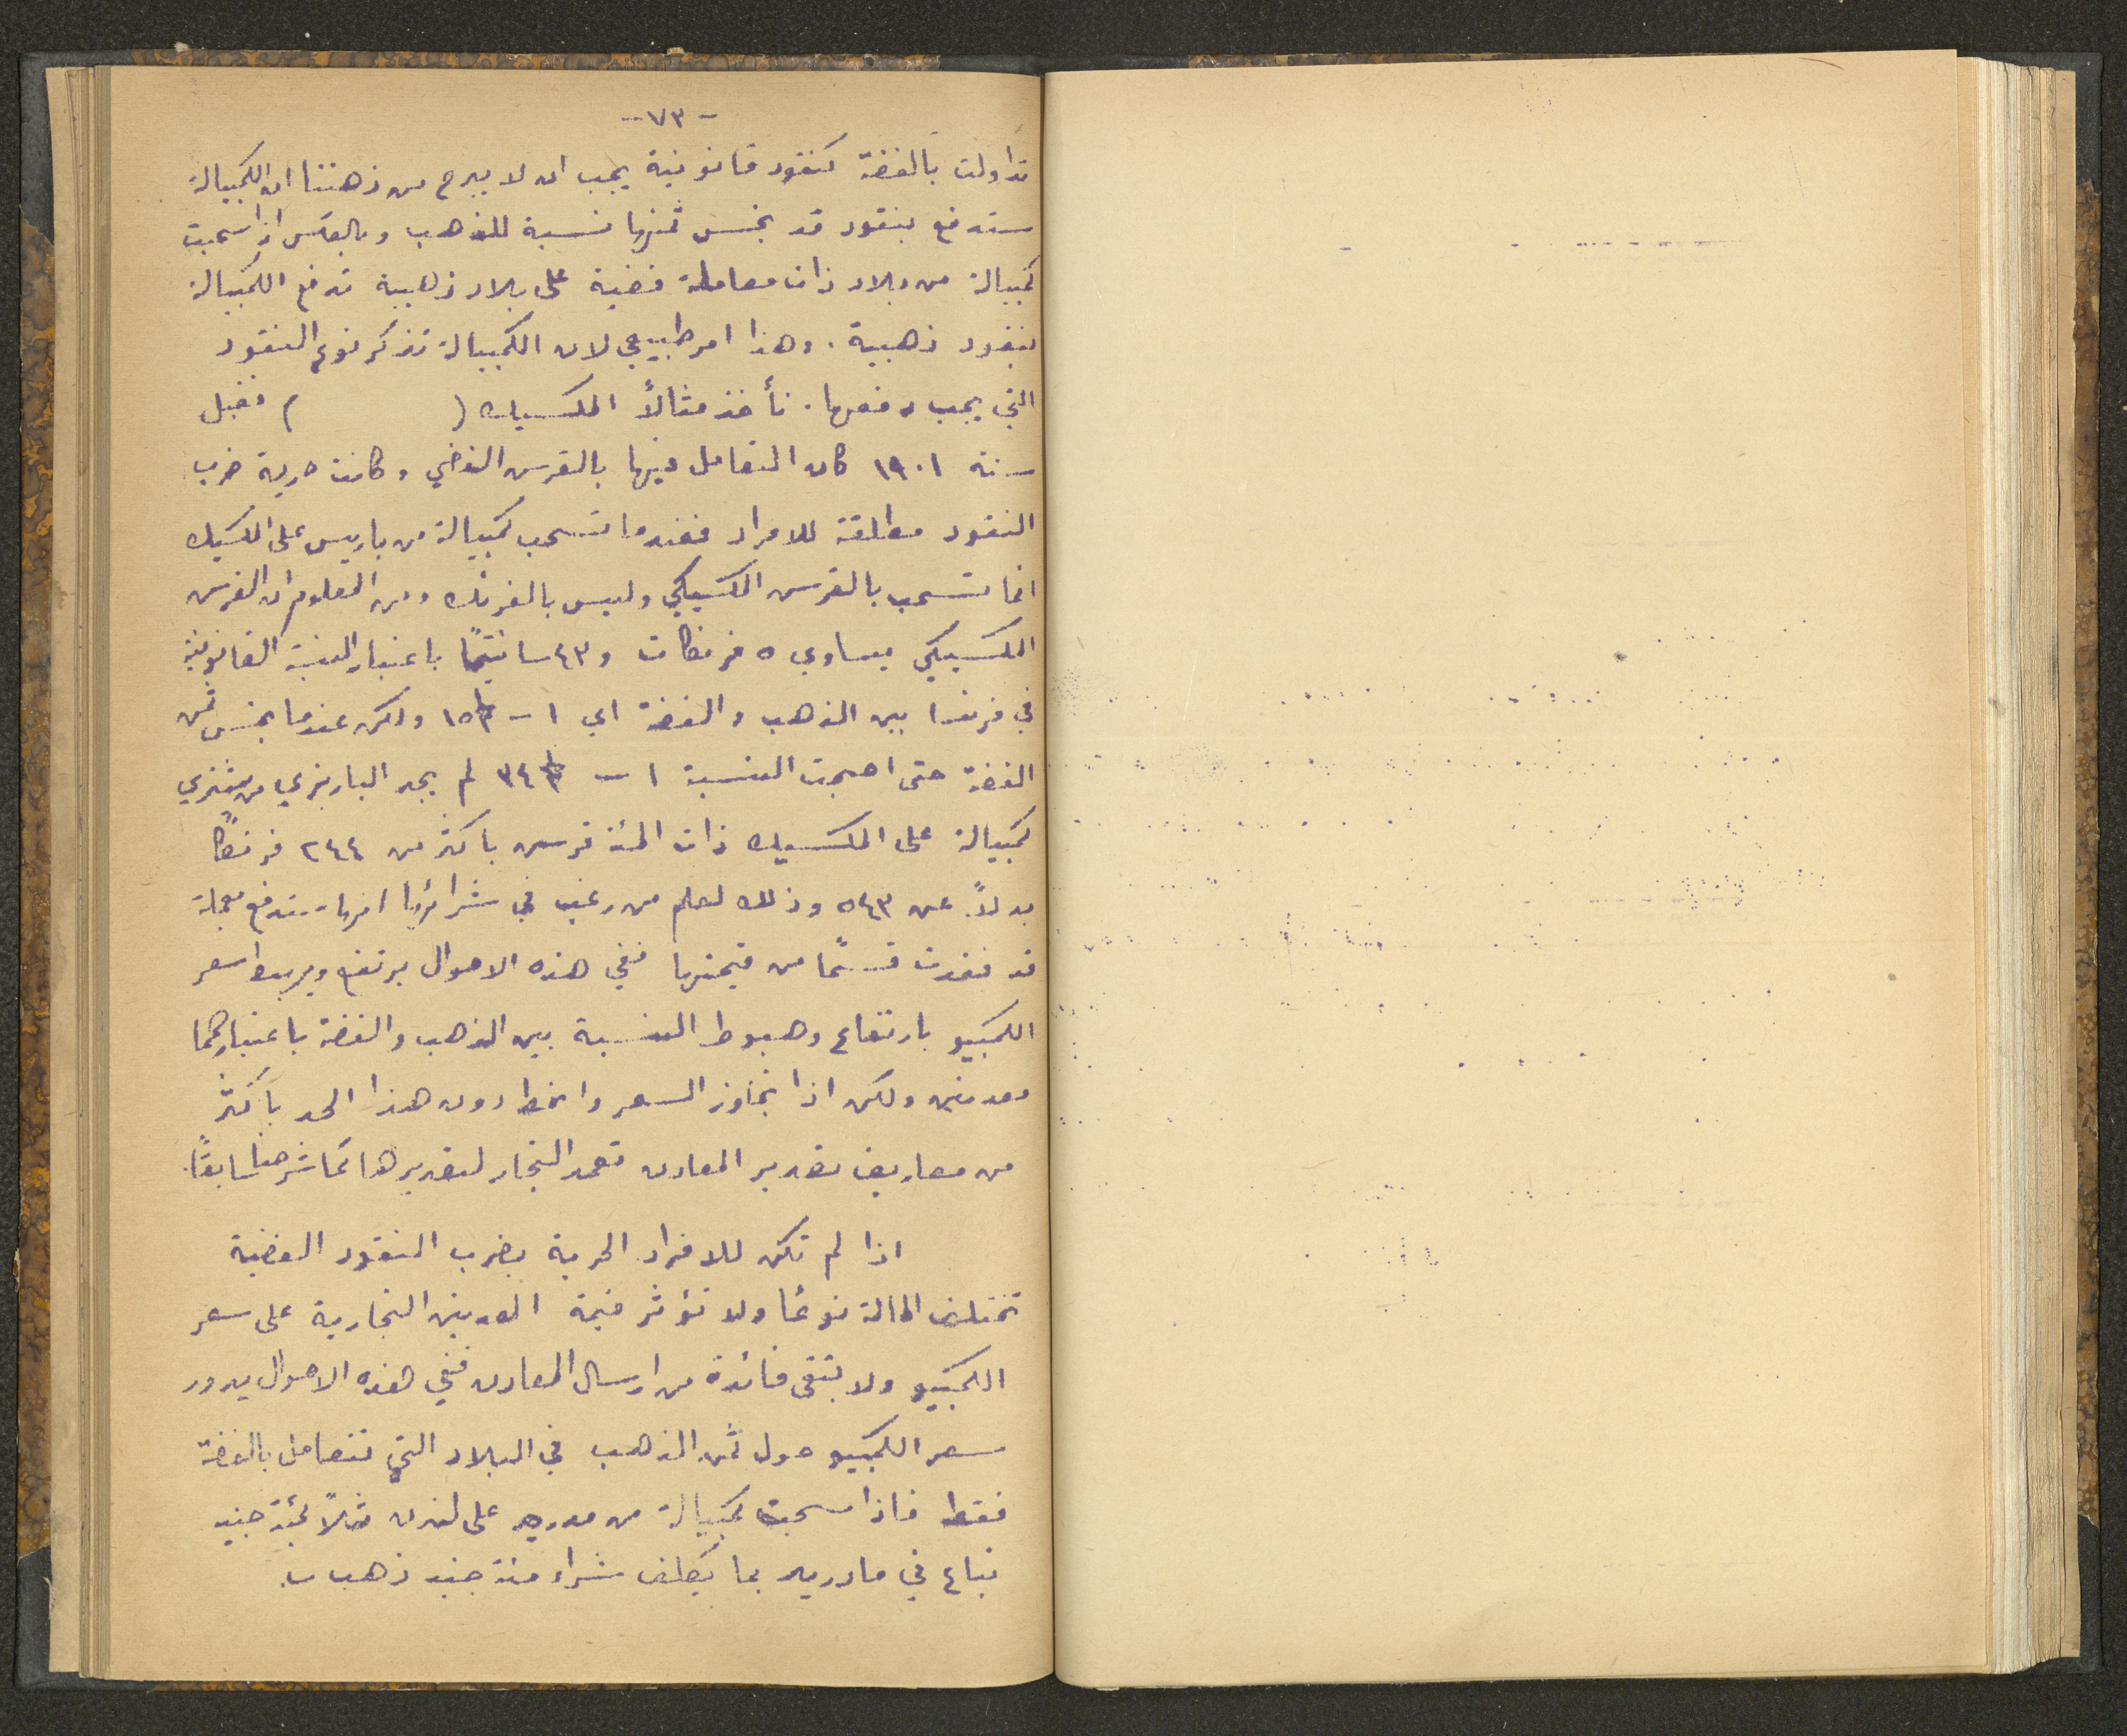 -٧٣-
تداولت بالفضة كنقود قانونية يجب ان لا يبرح من ذهننا ان الكمبيالة
ستدفع بنقود قد بخس ثمنها نسبة للذهب وبالعكس اذا سحبت
كمبيالة من بلاد ذات معاملة فضية على بلاد ذهبية تدفع الكمبيالة
بنقود ذهبية . وهذا امر طبيعي لان الكمبيالة تذكر نوع النقود
التي يجب دفعها . نأخذ مثالاً المكسيك (          ) فقبل
سنة ١٩٠١ كان التعامل فيها بالقرس الفضي وكانت حرية ضرب
النقود مطلقة للافراد فعندما تسحب كمبيالة من باريس على المكسيك
انما تسحب بالقرس المكسيكي وليس بالفرنك ومن المعلوم ان القرس
المكسيكي يساوي ٥ فرنكات و ٤٣ سانتيمًا باعتبار النسبة القانونية
في فرنسا بين الذهب والفضة اي ١ - ١٥½ ولكن عندما بخس ثمن
الفضة حتى اصبحت النسبة ١ - ٣٤½ لم يجد الباريزي من يشتري
كمبيالة على المكسيك ذات المئة قرس باكثر من ٢٤٤ فرنكًا
بدلاً عن ٥٤٣ وذلك لعلم من رغب في شرائها انها ستدفع بعملة
قد فقدت قسمًا من قيمتها ففي هذه الاحوال يرتفع ويهبط سعر
الكمبيو بارتفاع وهبوط النسبة بين الذهب والفضة باعتبارهما
معدنين ولكن اذا تجاوز السعر وانحط دون هذا الحد باكثر
من مصاريف تصدير المعادن تعمد التجار لتصديرها كما شرحنا سابقًا.
اذا لم تكن للافراد الحرية بضرب النقود الفضية
تختلف الحالة نوعًا ولا تؤثر قيمة المعدنين التجارية على سعر
الكمبيو ولا بتقى فائدة من ارسال المعادن ففي هذه الاحوال يدور
سعر الكمبيو حول ثمن الذهب في البلاد التي تتعامل بالفضة
فقط فاذا سحبت كمبيالة من مدريد على لندن مثلاً بمئة جنيه
تباع في مادريد بما يكلف شراء مئة جنيه ذهب